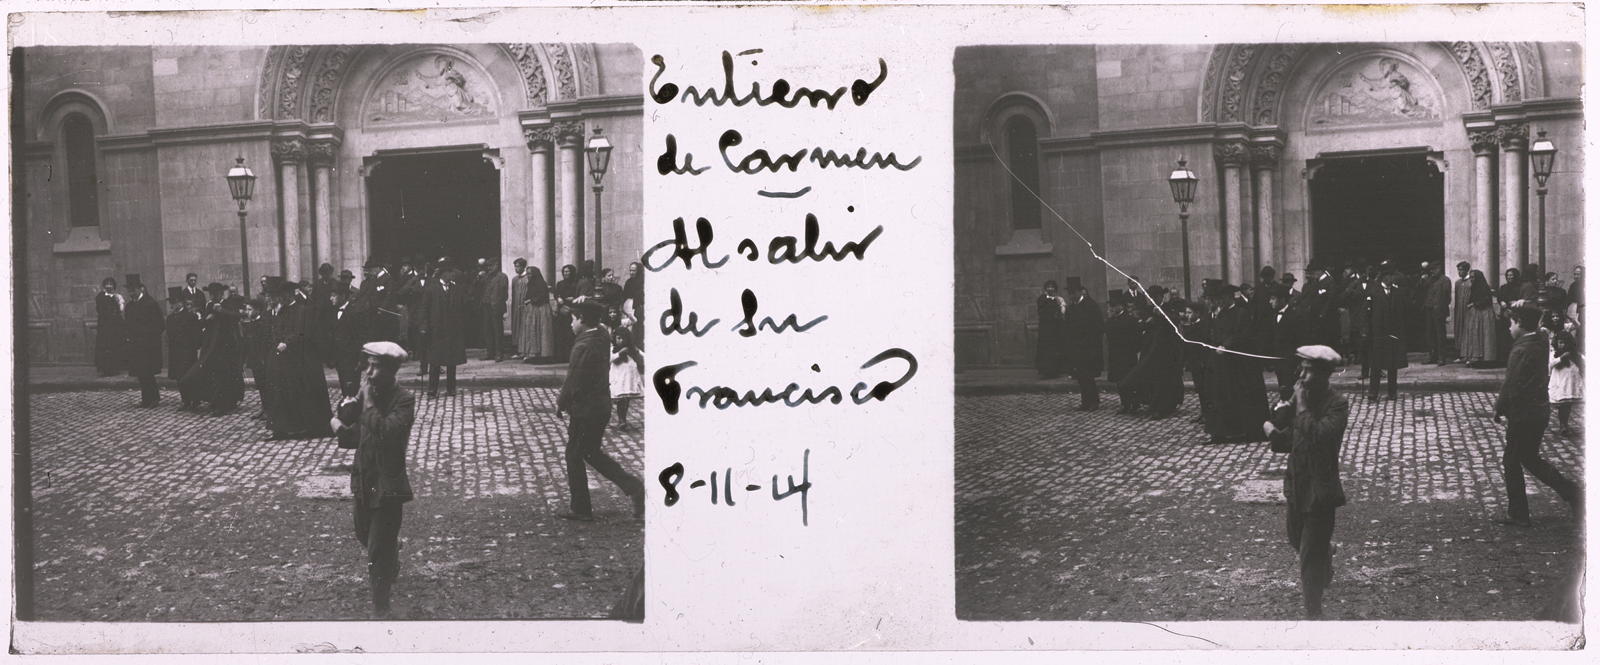 Entierro
de Carmen
Al salir
de Sn
Francisco
8-11-14